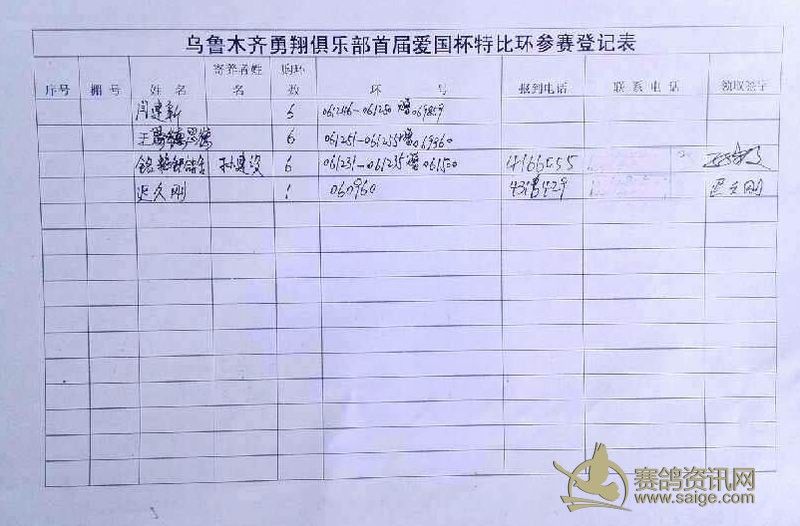 乌鲁木齐勇翔俱乐部首届爱国杯特比环参赛登记表
序号 棚号 姓名 寄养者姓名 购环数 环号 报到电话 联系电话 领取签字
闫建新 5 061246-061250 赠069859
王 6 061251-061255赠069860
孙建设 6 061231-061235赠061500 4166555
迟久刚 1 060960 迟久刚
赛鸽资讯网
www.saige.com